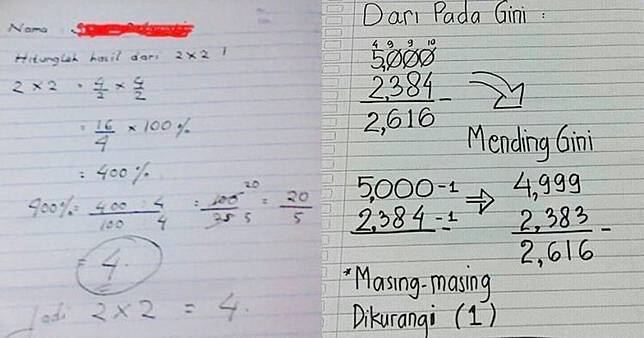 Nama :
Hitunglah hasil dari 2 x 2 !
2 x 2 = 4/2 x 4/2
= 16/4 x 100 %
= 400 %
400% = 400 : 4 / 100 : 4 = 100 20 / 25 5 = 20/5
= 4
Jadi 2 x 2 = 4.
Dari Pada Gini :
4 9 9 10
5,000
2,384 -
2,616
Mending Gini
5,000 -1 ⇒ 4,999
2,384 -1 2,383 -
2,616
*Masing-masing
Dikurangi (1)